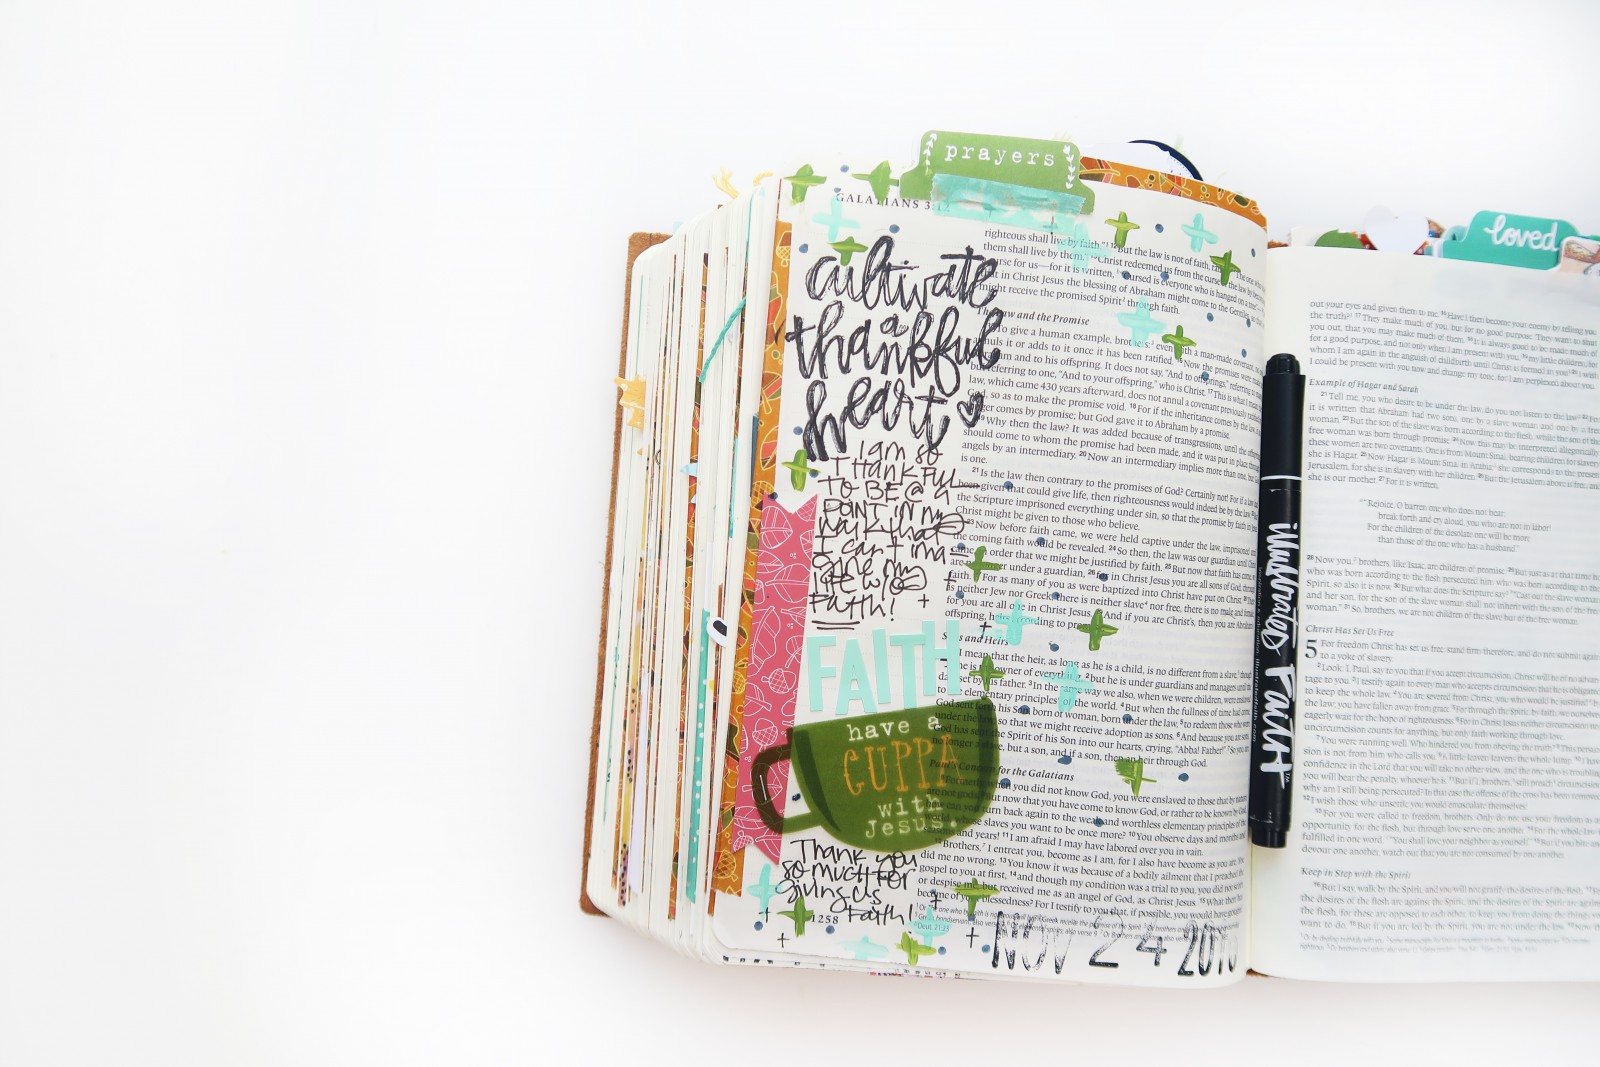 prayers
GALATIANS 3:1
cultivate
a
thankful
heart
I am so
THANKFUL
TO BE @ a
POINT in my
walk that
I can't ima
gine my
life w/o
FAITH!
FAITH
have a
CUPPA
with
Jesus.
Thank you
so much for
giving us
Faith!
1258
NOV 24 201
righteous shall live by faith." 12 But the law is not of faith, rat
them shall live by them." 13 Christ redeemed us from the curse of the law by
curse for us—for it is written, "Cursed is everyone who is hanged on a
in Christ Jesus the blessing of Abraham might come to the Gentiles
might receive the promised Spirit through faith.
The Law and the Promise
To give a human example, brothers: even with a man-made covenant
annuls it or adds to it once it has been ratified. 16 Now the promises were made
to Abraham and to his offspring. It does not say, "And to offsprings," referring to
but referring to one, "And to your offspring," who is Christ. 17 This is what I mean
law, which came 430 years afterward, does not annul a covenant previously
God, so as to make the promise void. 18 For if the inheritance comes by the law
longer comes by promise; but God gave it to Abraham by a promise.
19 Why then the law? It was added because of transgressions, until the offspring
should come to whom the promise had been made, and it was put in place through
angels by an intermediary. 20 Now an intermediary implies more than one, but God
is one.
21 Is the law then contrary to the promises of God? Certainly not! For if a law
been given that could give life, then righteousness would indeed be by the law.
the Scripture imprisoned everything under sin, so that the promise by faith in Jesus
Christ might be given to those who believe.
23 Now before faith came, we were held captive under the law, imprisoned
the coming faith would be revealed. 24 So then, the law was our guardian until Christ
came, in order that we might be justified by faith. 25 But now that faith has come,
are no longer under a guardian, 26 for in Christ Jesus you are all sons of God, through
faith. 27 For as many of you as were baptized into Christ have put on Christ.
is neither Jew nor Greek, there is neither slave nor free, there is no male and
for you are all one in Christ Jesus. And if you are Christ's, then you are Abraham's
offspring, heirs according to promise.
Sons and Heirs
I mean that the heir, as long as he is a child, is no different from a slave,
he is the owner of everything, 2 but he is under guardians and managers until
date set by his father. 3 In the same way we also, when we were children, were enslaved
to the elementary principles of the world. 4 But when the fullness of time had come,
God sent forth his Son, born of woman, born under the law, 5 to redeem those who were
under the law, so that we might receive adoption as sons. 6 And because you are sons,
God has sent the Spirit of his Son into our hearts, crying, "Abba! Father!" 7 So you
no longer a slave, but a son, and if a son, then an heir through God.
Paul's Concern for the Galatians
Formerly, when you did not know God, you were enslaved to those that by nature
are not gods. But now that you have come to know God, or rather to be known by God,
how can you turn back again to the weak and worthless elementary principles of the
world, whose slaves you want to be once more? 10 You observe days and months and
seasons and years! 11 I am afraid I may have labored over you in vain.
Brothers, I entreat you, become as I am, for I also have become as you are. You
did me no wrong. 13 You know it was because of a bodily ailment that I preached the
gospel to you at first, 14 and though my condition was a trial to you, you did not scorn
or despise me, but received me as an angel of God, as Christ Jesus. 15 What then has
become of your blessedness? For I testify to you that, if possible, you would have gouged
illustrated Faith
loved
out your eyes and given them to me. 16 Have I then become your enemy by telling you
the truth? 17 They make much of you, but for no good purpose. They want to shut
you out, that you may make much of them. 18 It is always good to be made much of
for a good purpose, and not only when I am present with you, 19 my little children, for
whom I am again in the anguish of childbirth until Christ is formed in you! 20 I wish
I could be present with you now and change my tone, for I am perplexed about you.
Example of Hagar and Sarah
21 Tell me, you who desire to be under the law, do you not listen to the law? 22 For
it is written that Abraham had two sons, one by a slave woman and one by a free
woman. 23 But the son of the slave was born according to the flesh, while the son of the
free woman was born through promise. 24 Now this may be interpreted allegorically:
these women are two covenants. One is from Mount Sinai, bearing children for slavery;
she is Hagar. 25 Now Hagar is Mount Sinai in Arabia; she corresponds to the present
Jerusalem, for she is in slavery with her children. 26 But the Jerusalem above is free, and
she is our mother. 27 For it is written,
"Rejoice, O barren one who does not bear;
break forth and cry aloud, you who are not in labor!
For the children of the desolate one will be more
than those of the one who has a husband."
28 Now you, brothers, like Isaac, are children of promise. 29 But just as at that time he
who was born according to the flesh persecuted him who was born according to the
Spirit, so also it is now. 30 But what does the Scripture say? "Cast out the slave woman
and her son, for the son of the slave woman shall not inherit with the son of the free
woman." 31 So, brothers, we are not children of the slave but of the free woman.
Christ Has Set Us Free
5 For freedom Christ has set us free; stand firm therefore, and do not submit again
to a yoke of slavery.
2 Look: I, Paul, say to you that if you accept circumcision, Christ will be of no advan-
tage to you. 3 I testify again to every man who accepts circumcision that he is obligated
to keep the whole law. 4 You are severed from Christ, you who would be justified by
the law; you have fallen away from grace. 5 For through the Spirit, by faith, we ourselves
eagerly wait for the hope of righteousness. 6 For in Christ Jesus neither circumcision nor
uncircumcision counts for anything, but only faith working through love.
7 You were running well. Who hindered you from obeying the truth? 8 This persua-
sion is not from him who calls you. 9 A little leaven leavens the whole lump. 10 I have
confidence in the Lord that you will take no other view, and the one who is troubling
you will bear the penalty, whoever he is. 11 But if I, brothers, still preach circumcision,
why am I still being persecuted? In that case the offense of the cross has been removed.
12 I wish those who unsettle you would emasculate themselves!
13 For you were called to freedom, brothers. Only do not use your freedom as an
opportunity for the flesh, but through love serve one another. 14 For the whole law is
fulfilled in one word: "You shall love your neighbor as yourself." 15 But if you bite and
devour one another, watch out that you are not consumed by one another.
Keep in Step with the Spirit
16 But I say, walk by the Spirit, and you will not gratify the desires of the flesh. 17 For
the desires of the flesh are against the Spirit, and the desires of the Spirit are against
the flesh, for these are opposed to each other, to keep you from doing the things you
want to do. 18 But if you are led by the Spirit, you are not under the law. 19 Now